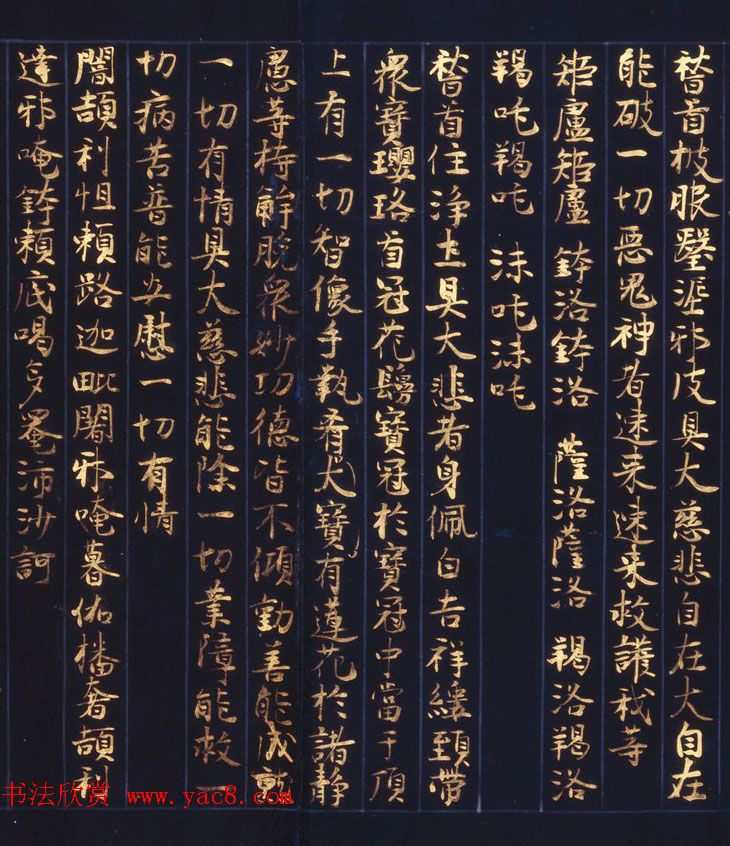 稽首枝服瑿涯邪皮具大慈悲自在大自在
能破一切惡鬼神者速来速来救護我等
矩盧矩盧 鉢洛鉢洛 薩洛薩洛 羯洛羯洛
羯吒羯吒 沫吒沫吒
稽首住淨土具大悲者身佩白吉祥緩頸帶
衆寶瓔珞首冠花鬘寶冠於寶冠中當于頂
上有一切智像手執 寶有蓮花於諸靜
慮等持解脫衆妙功德皆不傾動善能成
一切有情具大慈悲能除一切業障能救一
切病苦普能安慰一切有情
闇頡利怛賴路迦毗闍邪唵暮伽播奢頡利
達邪唵鉢賴底喝多罨沛沙訶
书法欣赏 www.yac8.com